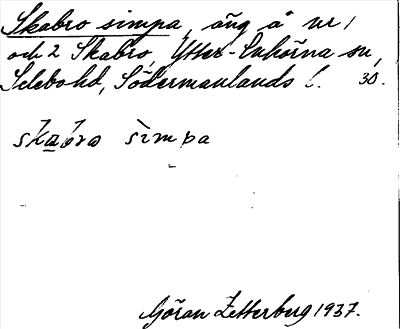 Skabro simpa, äng å nr 1
och 2 Skabro, Ytter-Enhörna sn,
Selebo hd, Södermanlands l. 30.
skabro simpa
Göran Zetterberg 1937.